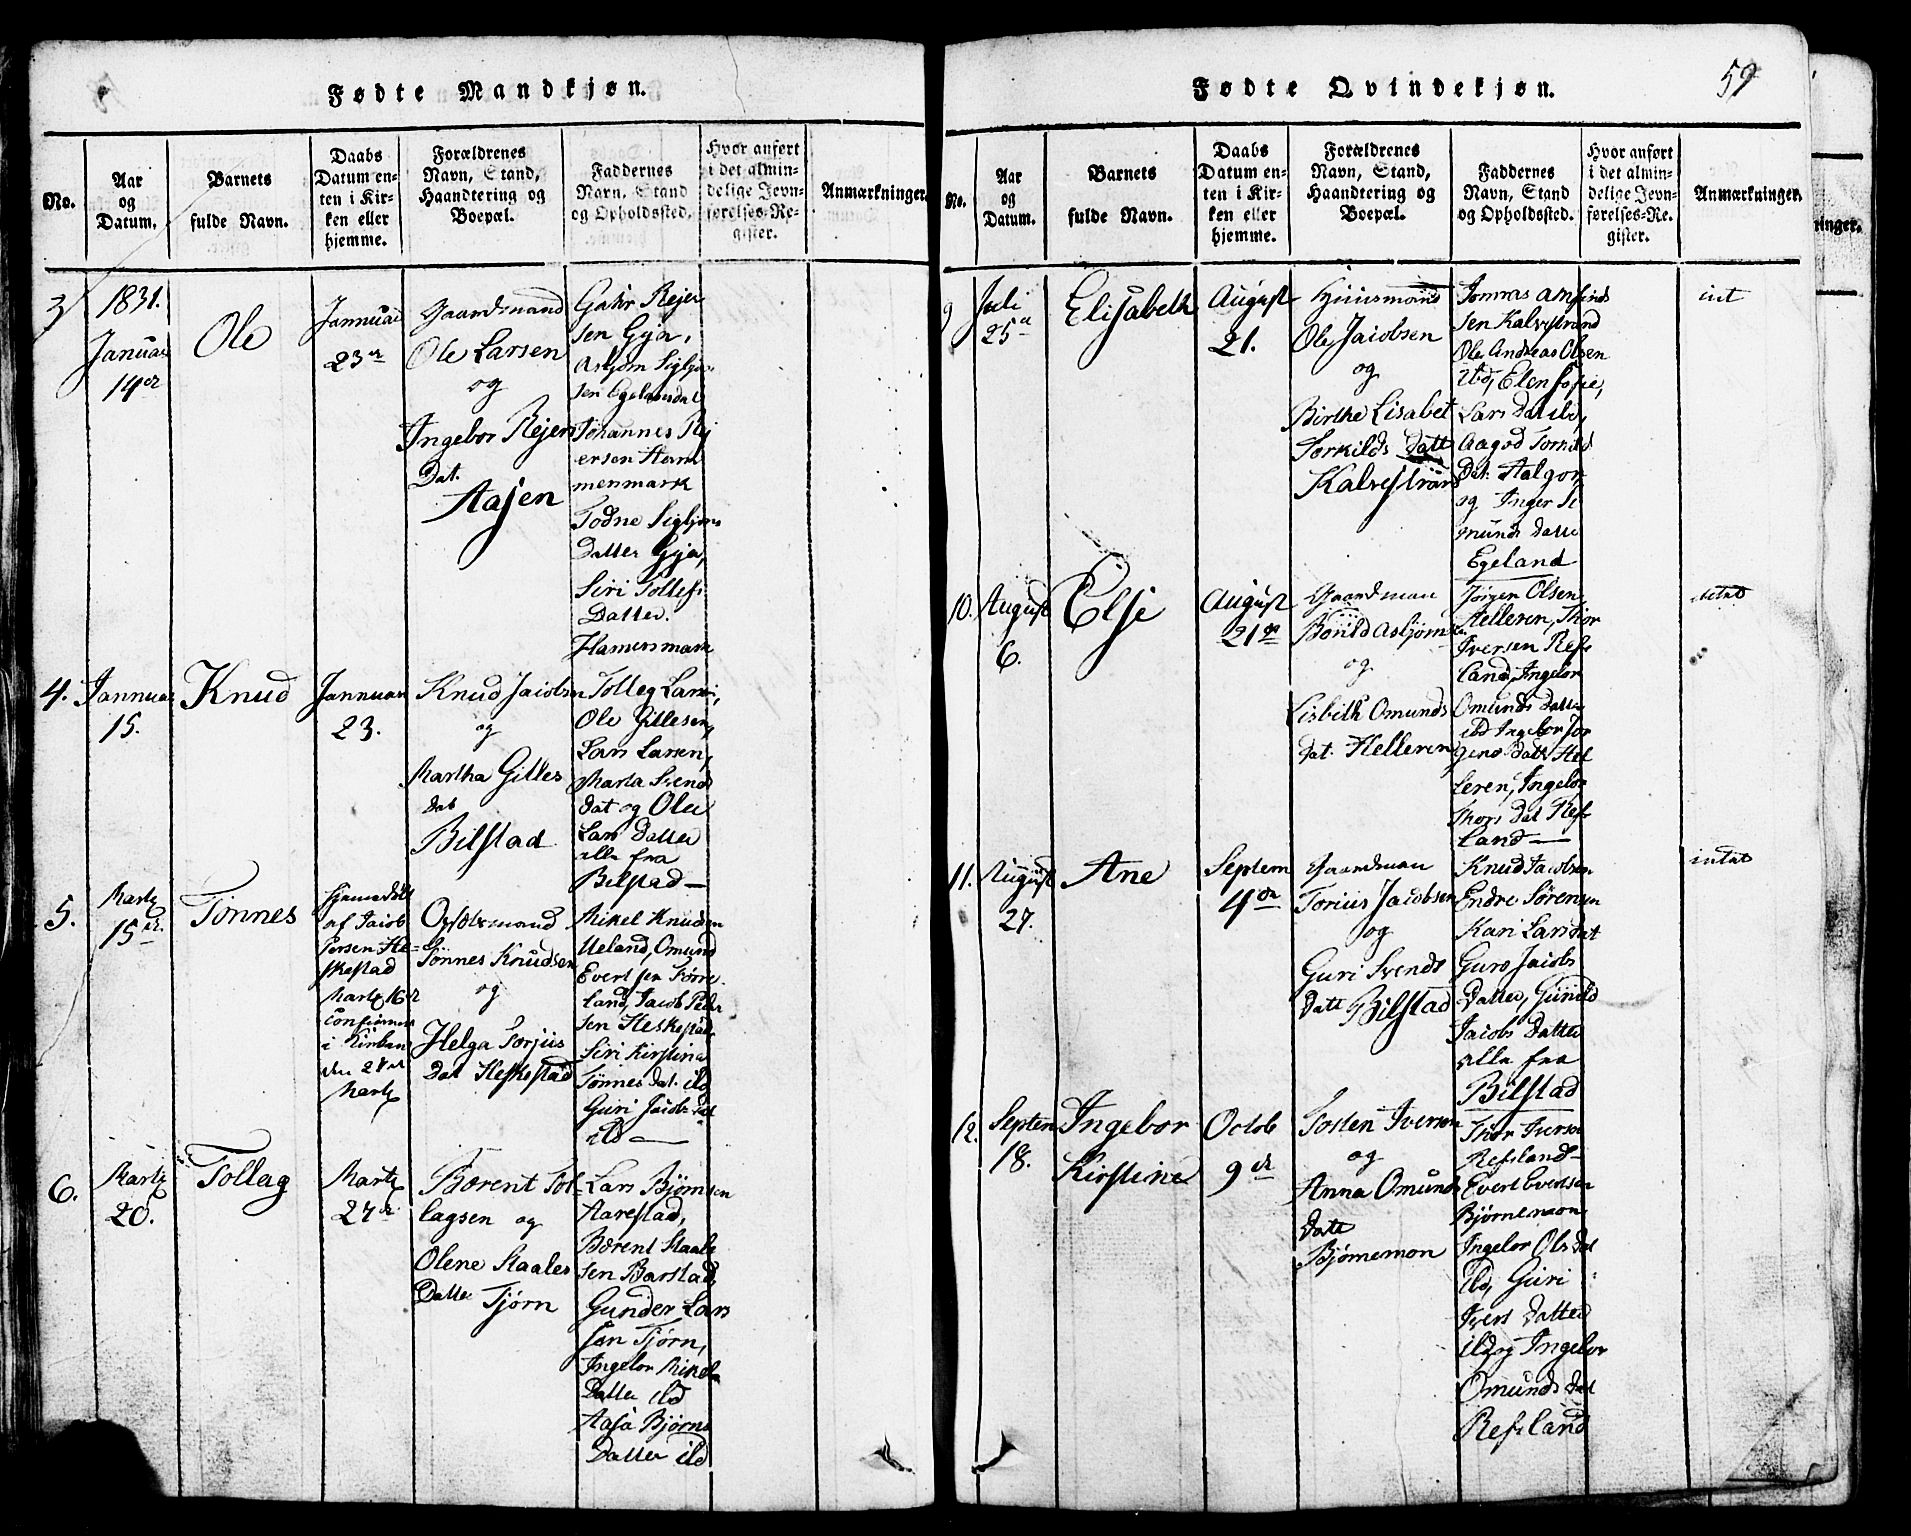 Fødte Mandkjøn.
No.
Aar
og
Datum.
Barnets
fulde Navn.
Daabs
Datum en-
ten i Kir-
ken eller
hjemme.
Forældrenes
Navn, Stand,
Haandtering og
Boepæl.
Faddernes
Navn, Stand
og Opholdssted.
Hvor anført
i det almin-
delige Jevn-
førelses-Re-
gister.
Anmærkninger.
3
1831.
Januar
14de
Ole
Jannuar
23de
Gaardmand
Ole Larsen
og
Ingebor Rejers
Dat.
Aasen
Rejer
sen Gya,
Johannes Rej
ersen Ham
menmark
Todne Sigbjørns
Datter Gya,
Siri Tollefs
Datter.
Hamersmark
4.
Jannuar
15.
Knud
Jannuar
23.
Knud Jacobsen
og
Martha Gilles
dat
Bilstad
Tolleg Larsen,
Ole Gillesen,
Lars Larsen,
Marta Svends
dat og Olee
Lars Datter
alle fra
Bilstad —
5.
Martz
15de
Tønnes
Hjemmedøbt
af Jacob
Persen He-
skestad
Martz 16de
Confirmert
i Kirken
den 27de
Martz
Tønnes Knudsen
og
Helga Torjus
Dat Heskestad
Mikel Knudsen
Ueland, Omund
Evertsen Førre
land, Jacob Peder
sen Heskestad
Siri Kirstina
Tønnes dat. ibd
Guri Jacobs dat
ibd —
6.
Martz
20.
Tollag
Martz
27de
Bærent Tol-
lagsen og
Olene Staales
Datter Tjørn
Lars Bjørnsen
Aarestad,
Bærent Staale
sen Barstad,
Gunder Lars
sen Tjørn,
Ingebor Mikels
Datter ibd
Aasa Bjørns
Datter ibd
Fødte Qvindekjøn.
59
No.
Aar
og
Datum.
Barnets
fulde Navn.
Daabs
Datum en-
ten i Kir-
ken eller
hjemme.
Forældrenes
Navn, Stand,
Haandtering og
Boepæl.
Faddernes
Navn, Stand
og Opholdssted.
Hvor anført
i det almin-
delige Jevn-
førelses-Re-
gister.
Anmærkninger.
ninger.
9
Juli
25
Elisabeth
August
21.
Huusmand
Ole Jacobsen
og
Birthe Lisabet
Torkilds Datt
Kalvestrand
Tomas
sen Kalvestrand
Ole Andreas Olsen
ibd, Elen Sofie,
Lars Dat ibd,
Dat. Aalgor
og Inger Si
munds datte
Egeland
int
10.
August
6.
Elsje
August
21de
Gaardman
Bonild Asbjørnsen
og
Lisbeth Omunds
dat. Helleren
Jørgen Olsen
Helleren, Thor
Iversen Refs
land, Ingebor
Omunds datter
ibd Ingebor Jør
gens datt. Hel
leren, Ingebor
Thors dat Refs
land —
intat
11.
August
27.
Ane
Septem
4de
Gaardman
Torius Jacobsen
og
Guri Svends
datt Bilstad
Knud Jacobsen
Endre Sørensen
Kari Lars dat
Guro Jacobs
Datter, Gunild
Jacobs datter
alle fra
Bilstad
intat
12.
Septem
18.
Ingebor
Kirstine
Octob
9de
Tosten Iversen
og
Anna Omunds
datt
Bjørnemon
Thor Iversen
Refsland —
Evert Evertsen
Bjørnemon,
Ingebor Ols dat
ibd, Guri
Ivers datter
ibd og Ingebor
Omunds dat
Refsland